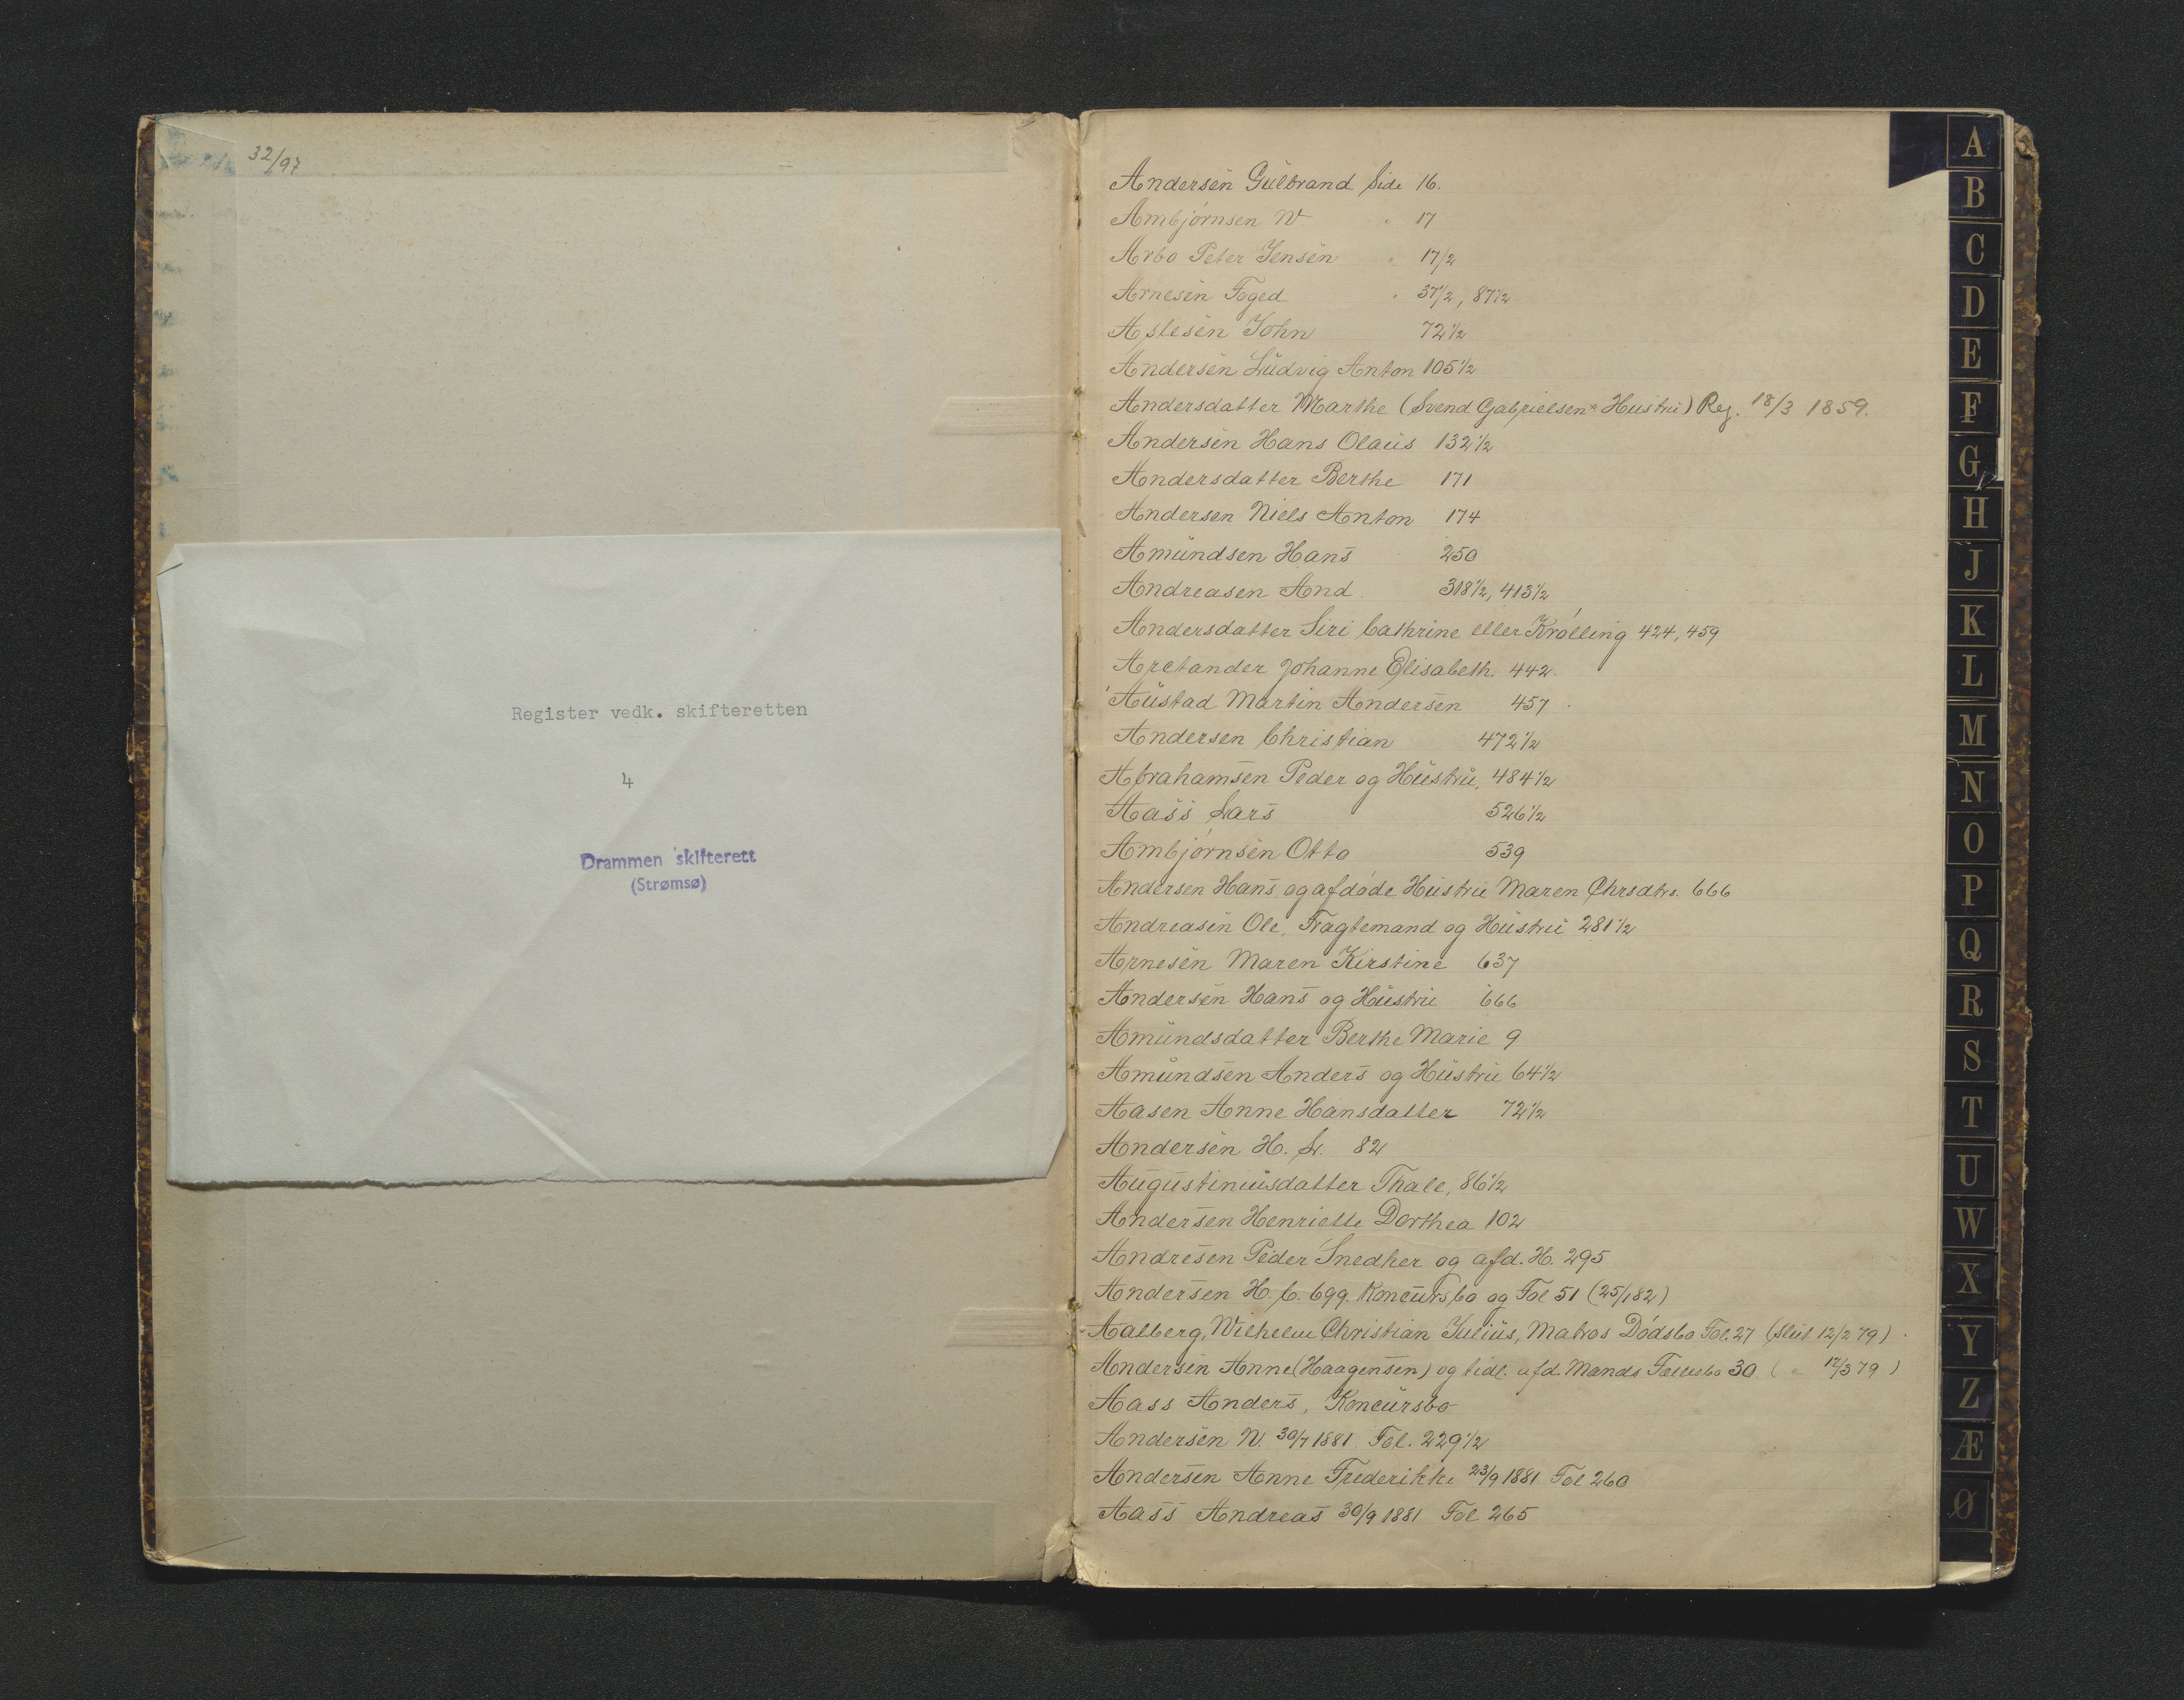 32/97
Register vedk. skifteretten
4
Drammen skifterett
(Strømsø)
Andersen Gulbrand Side 16.
Ambjørnsen N " 17
Arbo Peter Jensen " 17/2
Arnesen Foged " 37 1/2, 87 1/2
Aslesen John 72 1/2
Andersen Ludvig Anton 105 1/2
Andersdatter Marthe (Svend Gabrielsens Hustru) Reg. 18/3 1859.
Andersen Hans Olaus 132 1/2
Andersdatter Berthe 171
Andersen Niels Anton 174
Amundsen Hans 250
Andreasen And. 318 1/2, 413 1/2
Andersdatter Siri Cathrine eller Krølling 424, 459
Arctander Johanne Elisabeth. 442.
Austad Martin Andersen 457
Andersen Christian 472 1/2
Abrahamsen Peder og Hustru, 484 1/2
Aass Lars 526 1/2
Ambjørnsen Otto 539
Andersen Hans og afdøde Hustru Maren Chrsdtr. 666
Andreasen Ole, Fragtemand og Hustru 281 1/2
Arnesen Maren Kirstine 637
Andersen Hans og Hustru 666
Amundsdatter Berthe Marie 9
Amundsen Anders og Hustru 64 1/2
Aasen Anne Hansdatter 72 1/2
Andersen H. L. 82
Augustinusdatter Thale, 86 1/2
Andersen Henriette Dorthea 102
Andresen Peder Snedker og afd. H. 295
Andersen H. C. 699. Koncursbo og Fol 51 (25/182)
Aalberg, Wilhelm Christian Julius, Matros Dødsbo Fol. 27 (slut. 12/2 79)
Andersen Anne (Haagensen) og tidl. afd. Mands Fællesbo 30 ( " 12/3 79 )
Aass Anders, Koncursbo
Andersen N. 30/7 1881 Fol. 229 1/2
Andersen Anne Frederikke 23/9 1881 Fol 260
Aass Andreas 30/9 1881 Fol 265
A
B
C
D
E
F
G
H
J
K
L
M
N
O
P
Q
R
S
T
U
W
X
Y
Z
Æ
Ø